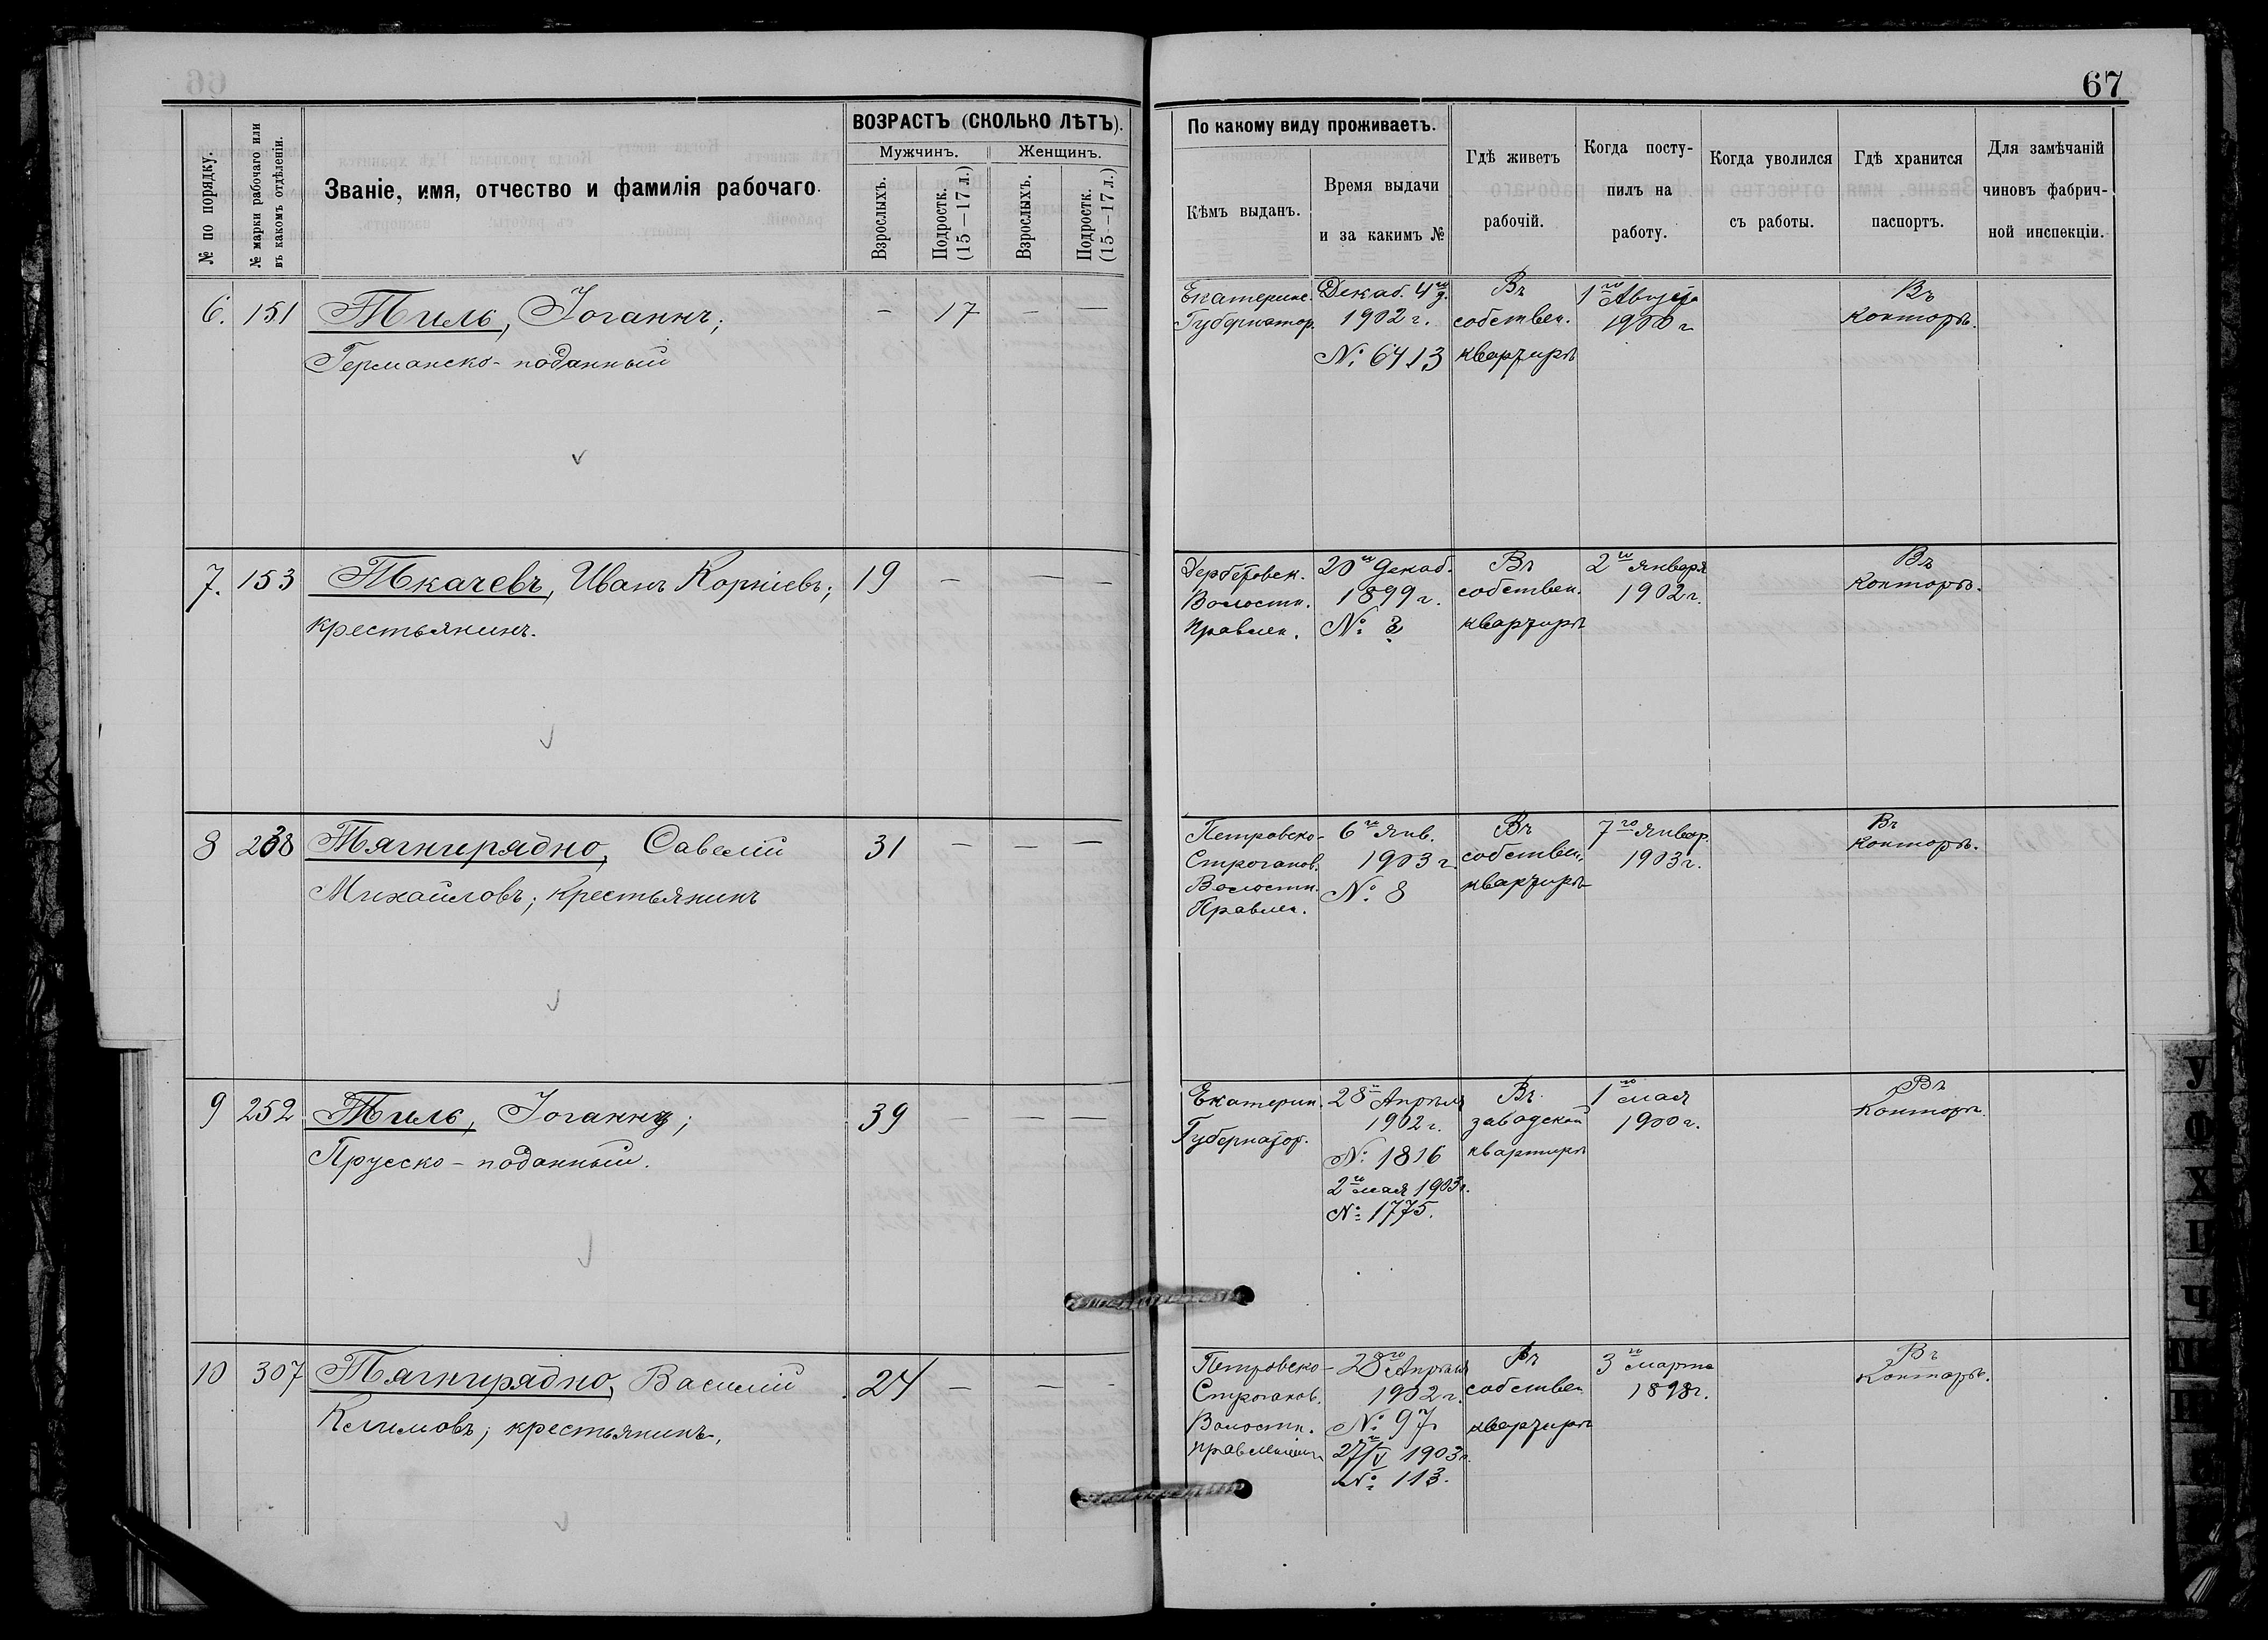 67
№ по порядку.
№ марки рабочаго или
въ какомъ отдѣленіи.
Званіе, имя, отчество и фамилія рабочаго.
ВОЗРАСТЪ (СКОЛЬКО ЛѢТЪ).
Мужчинъ.
Женщинъ.
Взрослыхъ.
Подростк.
(15—17 л.)
Взрослыхъ.
Подростк.
(15—17 л.)
По какому виду проживаетъ.
Кѣмъ выданъ.
Время выдачи
и за какимъ №
Гдѣ живетъ
рабочій.
Когда посту-
пилъ на
работу.
Когда уволился
съ работы.
Гдѣ хранится
паспортъ.
Для замѣчаній
чиновъ фабрич-
ной инспекціи.
6. 151 Тиль, Іоганнъ; — 17 — —
Германско-поданный
Екатерине.
Губернатор.
Декаб. 4го д.
1902 г.
№ 6413
Въ
собствен.
квартирѣ
1го Августа
1900 г
Въ
Конторѣ.
7. 153 Ткачевъ, Иванъ Корніевъ; 19 — — —
крестьянинъ.
Волостн.
Правлен.
20го Декаб.
1899 г.
№ 3
Въ
собствен.
квартирѣ
2го Января
1902 г.
Въ
Конторѣ.
8 238 Тягнирядно, Савелій 31 — — —
Михайловъ; крестьянинъ
Петровско-
Строганов.
Волостн.
Правлен.
6го Янв.
1903 г.
№ 8
Въ
собствен.
квартирѣ
7го Январ.
1903 г.
Въ
Конторѣ.
9 252 Тиль, Іоганнъ; 39 — — —
Прусско-поданный.
Екатерин.
Губернатор.
28го Апрѣля
1902 г.
№ 1816
2го мая 1903 г.
№ 1775.
Въ
заводской
квартирѣ
1го мая
1900 г.
Въ
Конторѣ.
10 307 Тягнирядно, Василій 24 — — —
Климовъ; крестьянинъ.
Петровско-
Строганов.
Волостн.
правленіем
28го Апрѣля
1902 г.
№ 97
27/V 1903 г.
№ 113.
Въ
собствен
квартирѣ
3го марта
1898 г.
Въ
Конторѣ.
У
Ф
Х
Ц
Ч